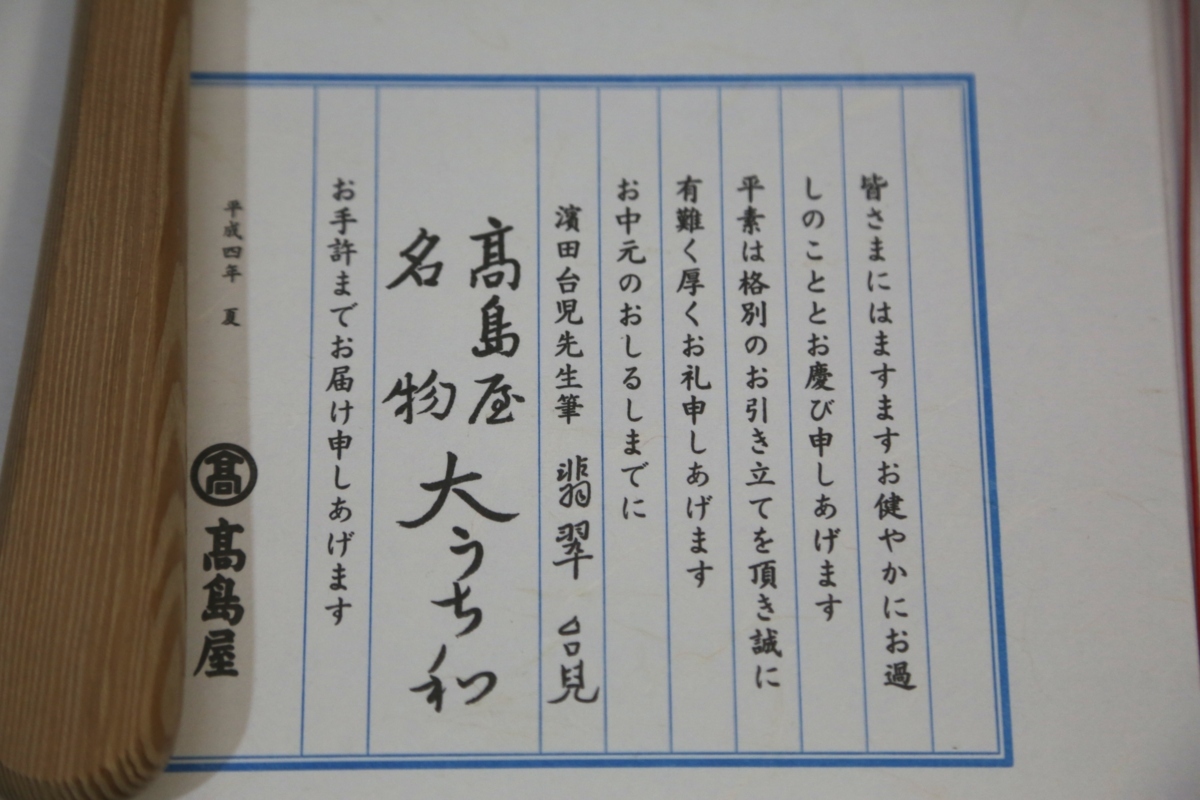 皆さまにはますますお健やかにお過
しのこととお慶び申しあげます
平素は格別のお引き立てを頂き誠に
有難く厚くお礼申しあげます
お中元のおしるしまでに
濱田台児先生筆 翡翠 台児
髙島屋
名物
大うち和
お手許までお届け申しあげます
平成四年 夏
髙 髙島屋